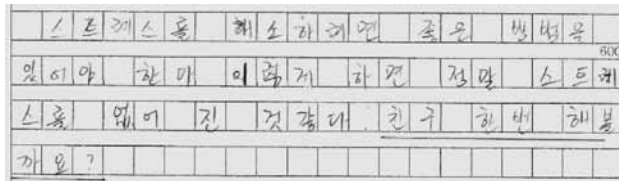 스트레스를 해소하려면 좋은 방법을
600
있어야 한다 이렇게 하면 정말 스트레
스를 없어 진 것 같다. 친구 한번 해볼
까요?